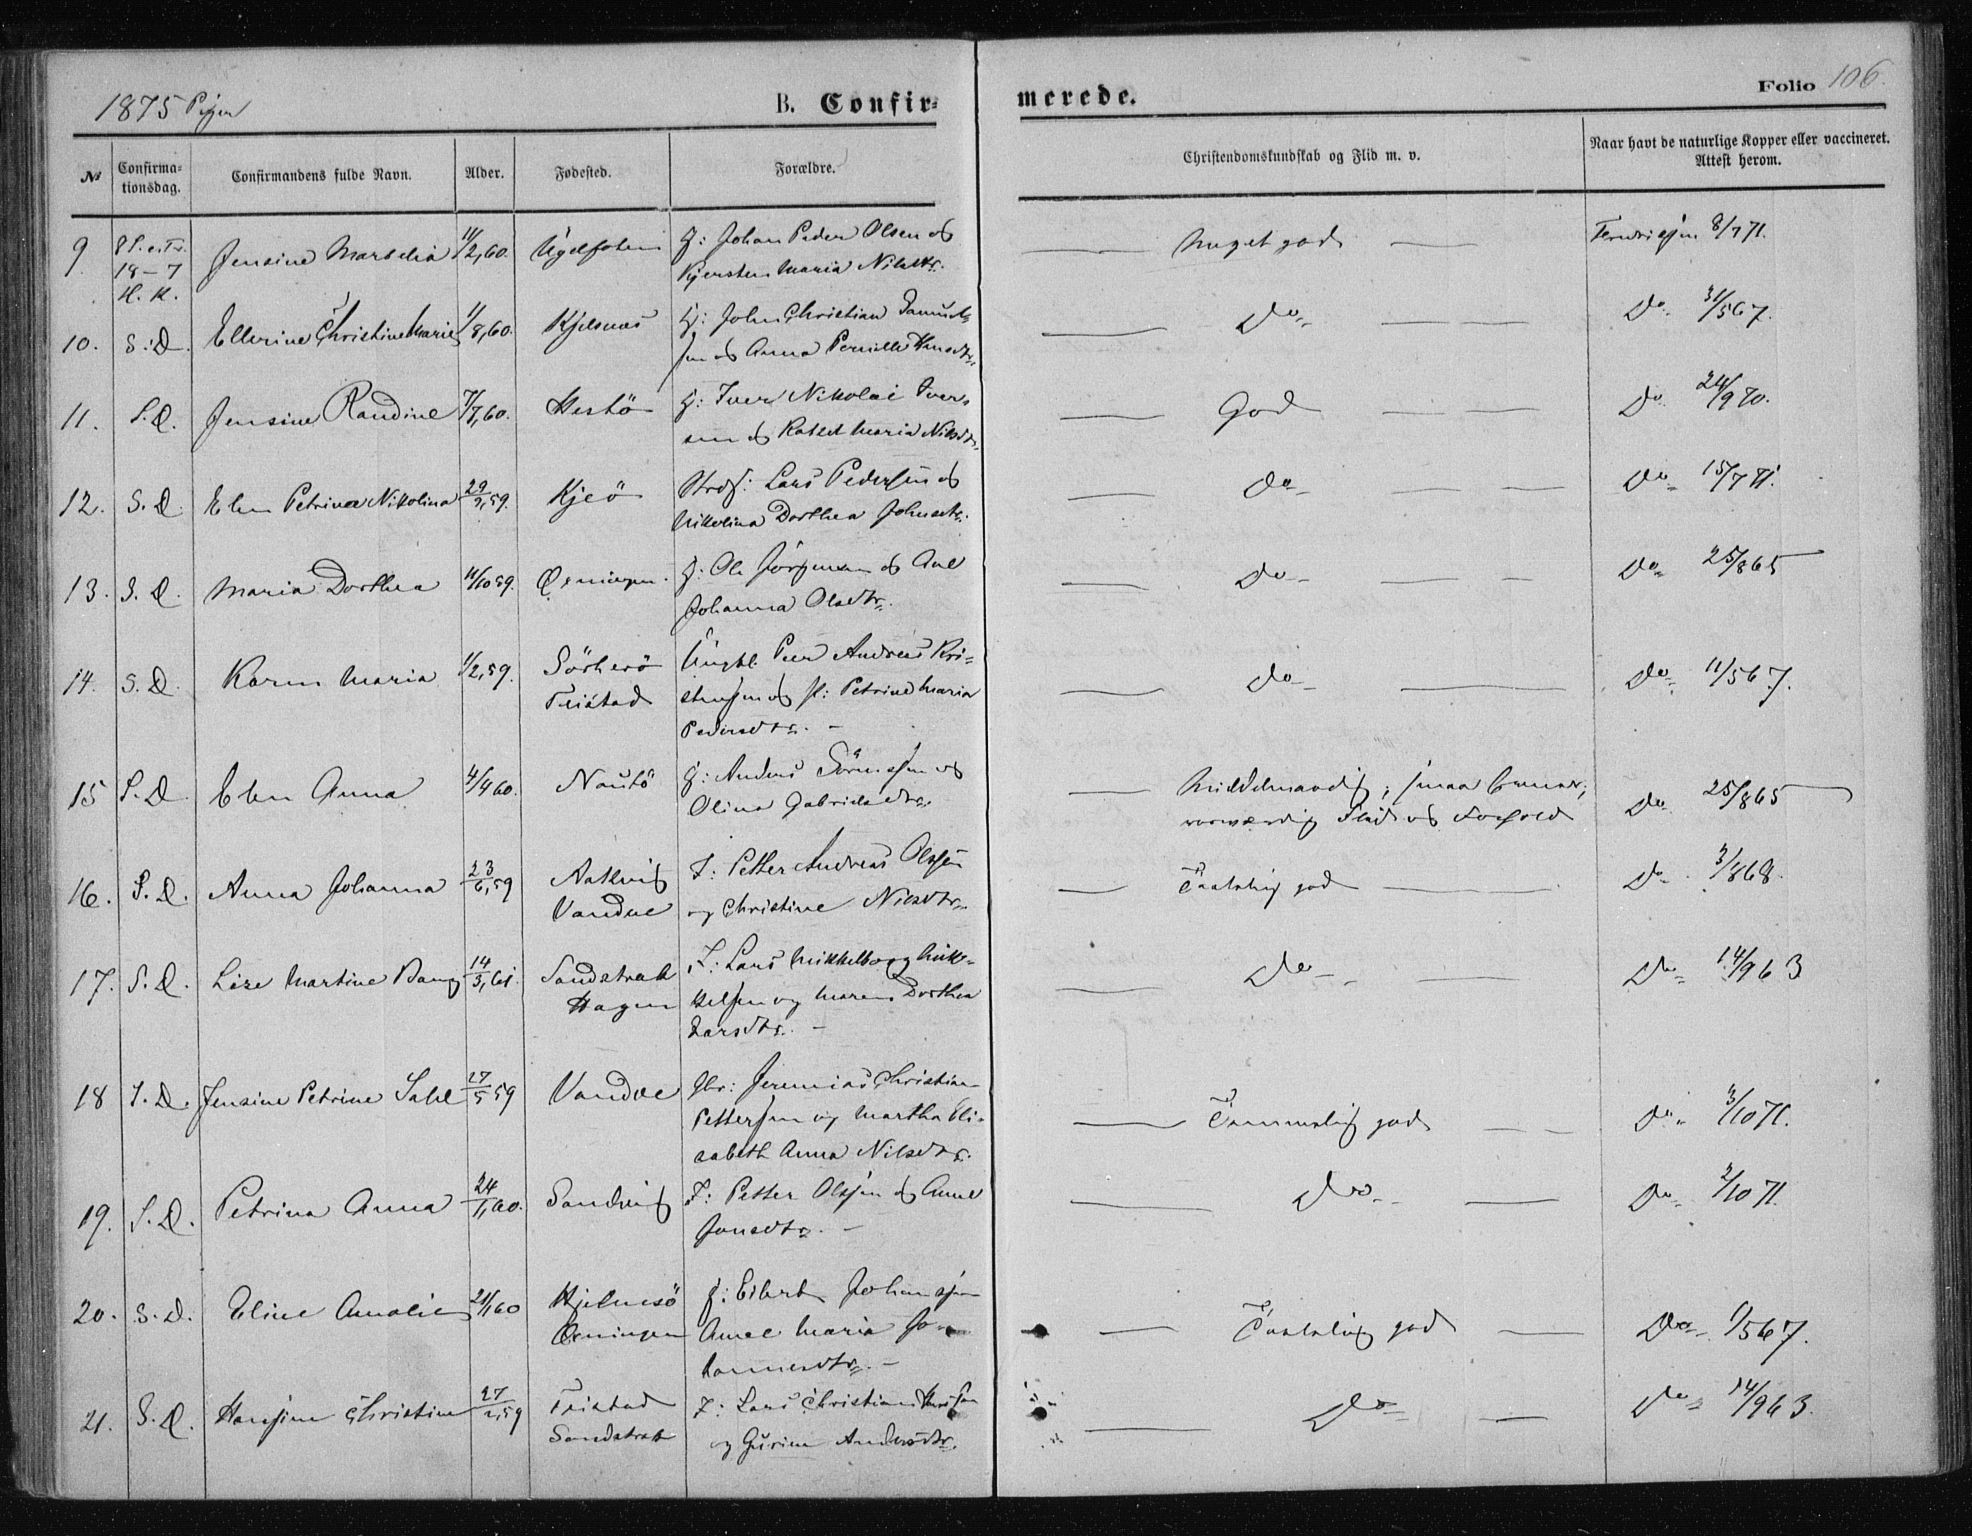 1875 Piger
B. Confir-
merede.
Folio 106.
№
Confirma-
tionsdag.
Confirmandens fulde Navn.
Alder.
Fødested.
Forældre.
Christendomskundskab og Flid m. v.
Naar havt de naturlige Kopper eller vaccineret.
Attest herom.
9 8 S. e. Tr. Jensine Marselia 11/2,60. G: Johan Peder Olsen og Meget god 8/7 71.
18–7 Kjersten Maria Nilsdtr.
H. K.
10. S. D. Ellerine Christine Marie 1/8,60. Kjelsnæs G: John Christian Samuel- Do 31/5 67.
sen og Anna Pernille Hansdtr.
11. S. D. Jensine Randine 7/7,60. Hestö G: Iver Nikolai Iver- God Do 24/9 70.
sen og Maria Nilsdtr.
12. S. D. Elen Petrine Nikolina 29/9,59. Kjeö Lars Pedersen og Do Do 15/7 71.
Nikolina Dorthea Johnsdtr.
13. S. D. Maria Dorthea 11/10 59. Øxningen. G: Ole Jørgensen og Ane Do Do 25/8 65
Johanna Olsdtr.
14. S. D. Karen Maria 1/2,59. Sörherö Ungkl Peer Andreas Kri- Do Do 11/5 67.
Teistad stensen og p: Petrine Maria
Pedersdtr. –
15 S. D. Elen Anna 4/4 60. Nautö G: Anders Sörensen og Middelmaadig, smaa Evner, Do 25/8 65
Olina Gabrielsdtr. roesværdig Flid og Forhold
16. S. D. Anna Johanna 23/6,59 Aakvig I: Petter Andreas Olsen Taalelig god Do 3/8 68.
Vandve og Christine Nilsdtr.
17. S. D. Lise Martine Bang 14/3,61. Sandstrak I: Lars Mikkelborg Mik- Do Do 14/9 63
Hagen kelsen og Maren Dorthea
Larsdtr. –
18 S. D. Jensine Petrine Sahl 27/5 59 Vandve Jeremias Christian
Pettersen og Martha Eli- Temmelig god Do 3/10 71.
sabeth Anna Nilsdtr.
19. S. D. Petrina Anna 24/1,60. Sandvig I: Petter Olsen og Anne Do Do 2/10 71.
Jonsdtr. –
20. S. D. Eline Amalie 21/1 60 Hjelmsö G: Eilert Johansen
Øxningen Anne Maria Jo- Taalelig god Do 1/5 67.
hannesdtr. –
21. S. D. Hansine Christine 27/2,59 Teistad I: Lars Christian Hansen Do Do 14/9 63.
Sandstrak og Gurine Andersdtr.